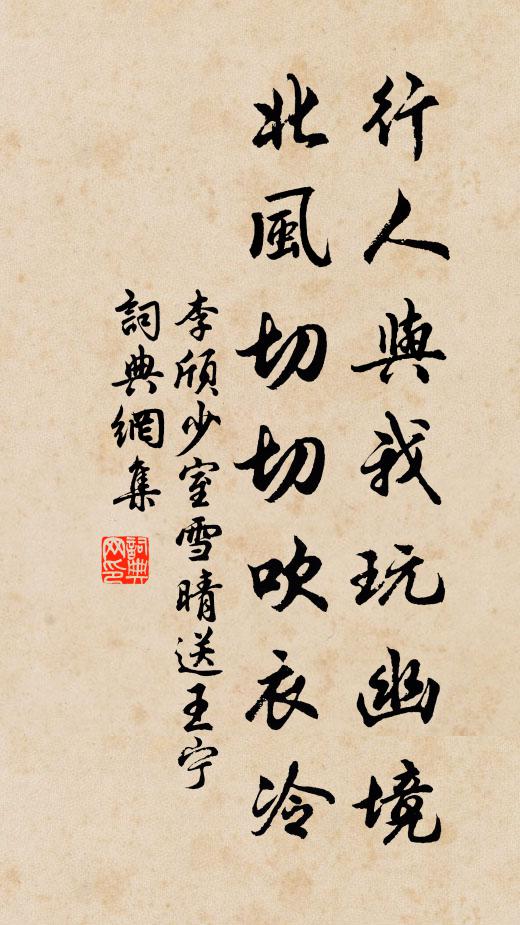 行人與我玩幽境
北風切切吹衣冷
李頎少室雪晴送王宁
詞典網集
詞典網印